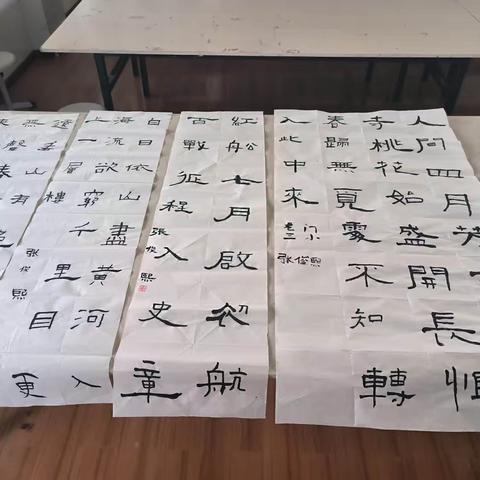 人間四月芳
寺桃花始盛開長恨
春歸無覓處不知轉
入此中來
張俊熙
紅船七月啟初航
百戰征程入史章
張俊熙
白日依山盡黃河入
海流欲窮千里目更
上一層樓
張俊熙
遠看山有色
無聲春